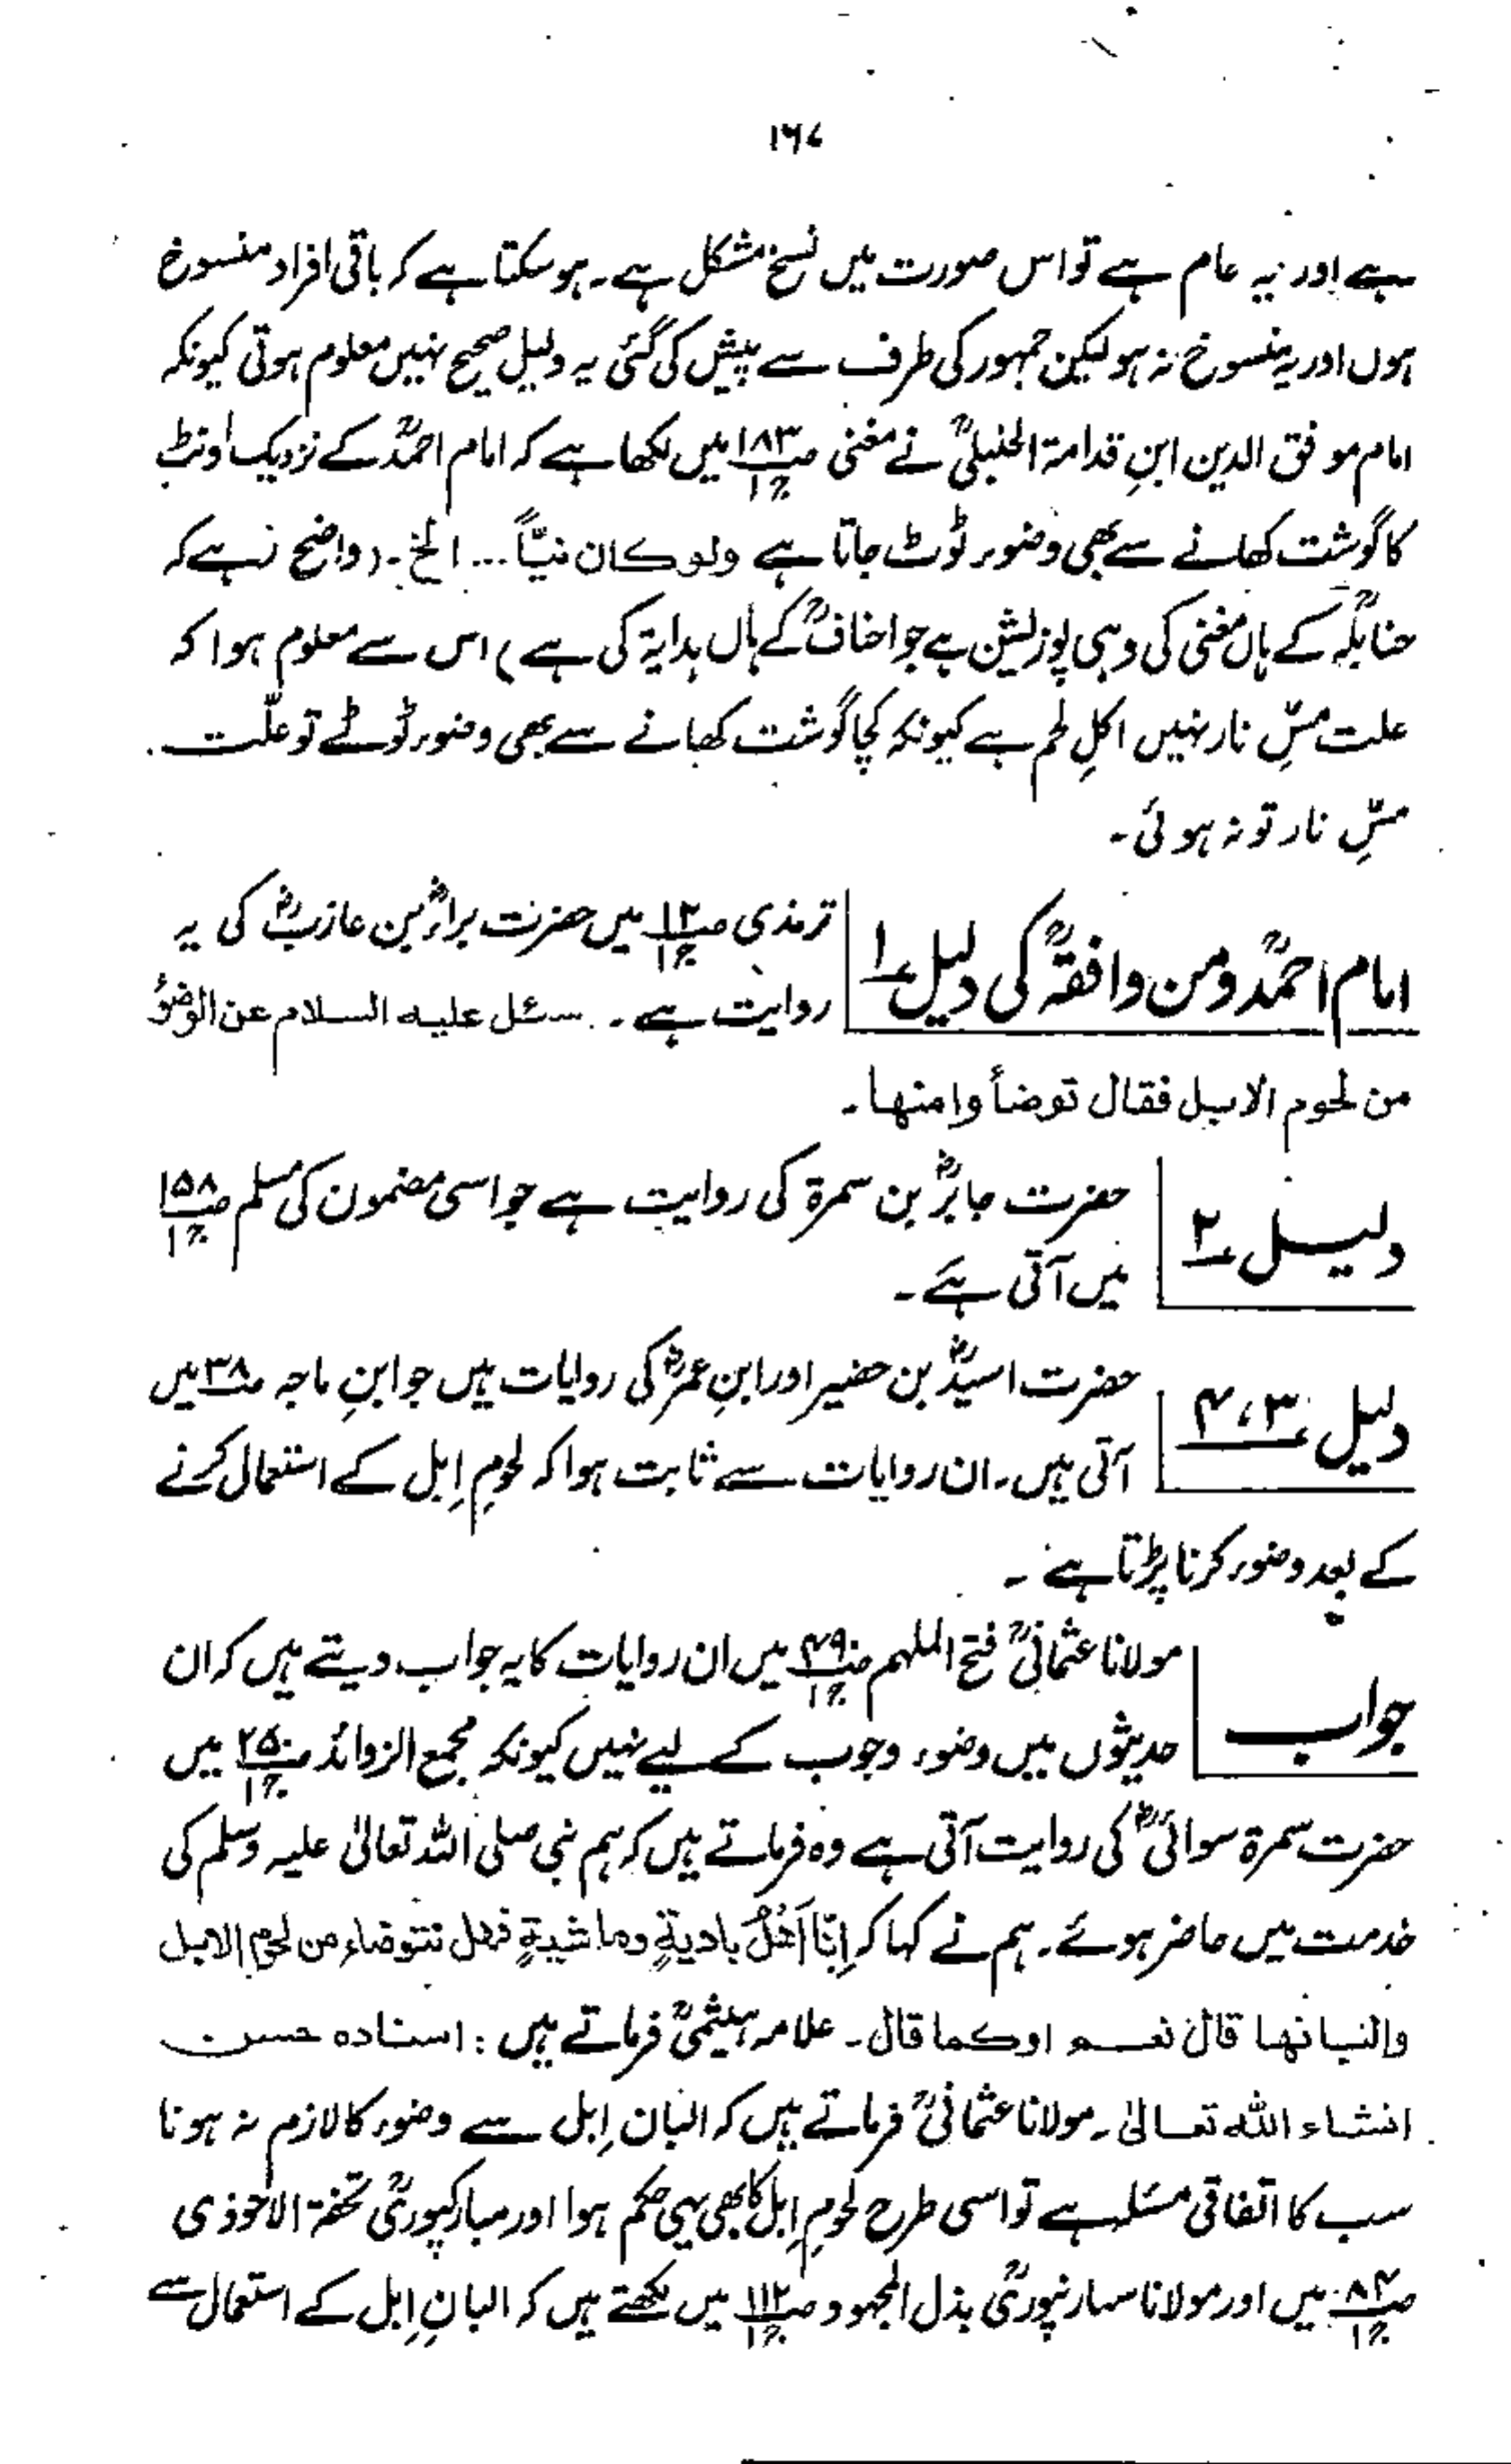 ۱۶۷
ہے اور یہ عام ہے تو اس صورت میں نسخ مشکل ہے۔ ہو سکتا ہے کہ باقی افراد منسوخ
ہوں اور یہ منسوخ نہ ہو لیکن جمہور کی طرف سے پیش کی گئی یہ دلیل صحیح نہیں معلوم ہوتی کیونکہ
امام موفق الدین ابنِ قدامۃ الحنبلیؒ نے مغنی ص۱۸۳ ج۱ میں لکھا ہے کہ امام احمدؒ کے نزدیک اونٹ
کا گوشت کھانے سے بھی وضوء ٹوٹ جاتا ہے ولو کان نیّاً ... الخ۔ (واضح رہے کہ
حنابلہؒ کے ہاں مغنی کی وہی پوزیشن ہے جو احنافؒ کے ہاں ہدایۃ کی ہے) اس سے معلوم ہوا کہ
علت مسِّ نار نہیں اکلِ لحم ہے کیونکہ کچا گوشت کھانے سے بھی وضوء ٹوٹے تو علّت
مسِّ نار تو نہ ہوئی۔
امام احمدؒ ومن وافقہؒ کی دلیل ۱ ترمذی ص۱۲ ج۱ میں حضرت براءؓ بن عازبؓ کی یہ
روایت ہے۔ سئل علیہ السلام عن الوضوُ
من لحوم الابل فقال توضأوا منھا۔
دلیل ۲ حضرت جابرؓ بن سمرۃ کی روایت ہے جو اسی مضمون کی مسلم ص۱۵۸ ج۱
میں آتی ہے۔
دلیل ۳، ۴ حضرت اسیدؓ بن حضیر اور ابنِ عمرؓ کی روایات ہیں جو ابنِ ماجہ ص۳۸ میں
آتی ہیں۔ ان روایات سے ثابت ہوا کہ لحومِ اِبل کے استعمال کرنے
کے بعد وضوء کرنا پڑتا ہے۔
جواب مولانا عثمانیؒ فتح الملہم ص۴۹۰ ج۱ میں ان روایات کا یہ جواب دیتے ہیں کہ ان
حدیثوں میں وضوء وجوب کے لیے نہیں کیونکہ مجمع الزوائد ص۲۵۰ ج۱ میں
حضرت سمرۃ سوائیؓ کی روایت آتی ہے وہ فرماتے ہیں کہ ہم نبی صلی اللہ تعالیٰ علیہ وسلم کی
خدمت میں حاضر ہوئے۔ ہم نے کہا کہ اِنّا اَھْلُ بادیةٍ وماشیةٍ فھل نتوضاء من لحوم الابل
والبانھا قال نعم اوکما قال۔ علامہ ہیثمیؒ فرماتے ہیں: اسنادہ حسن
انشاء اللہ تعالیٰ۔ مولانا عثمانیؒ فرماتے ہیں کہ البانِ اِبل سے وضوء کا لازم نہ ہونا
سب کا اتفاقی مسئلہ ہے تو اسی طرح لحومِ اِبل کا بھی یہی حکم ہوا اور مبارکپوریؒ تحفۃ الاحوذی
ص۸۴ ج۱ میں اور مولانا سہارنپوریؒ بذل المجہود ص۱۱۲ ج۱ میں لکھتے ہیں کہ البانِ اِبل کے استعمال سے